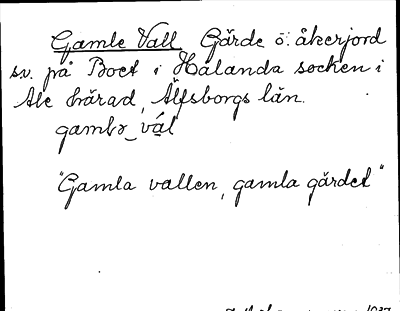 Gamle Vall Gärde o. åkerjord
sv. på Boet i Hålanda socken i
Ale härad, Älfsborgs län.
gambə vál
"Gamla vallen, gamla gärdet"
1937